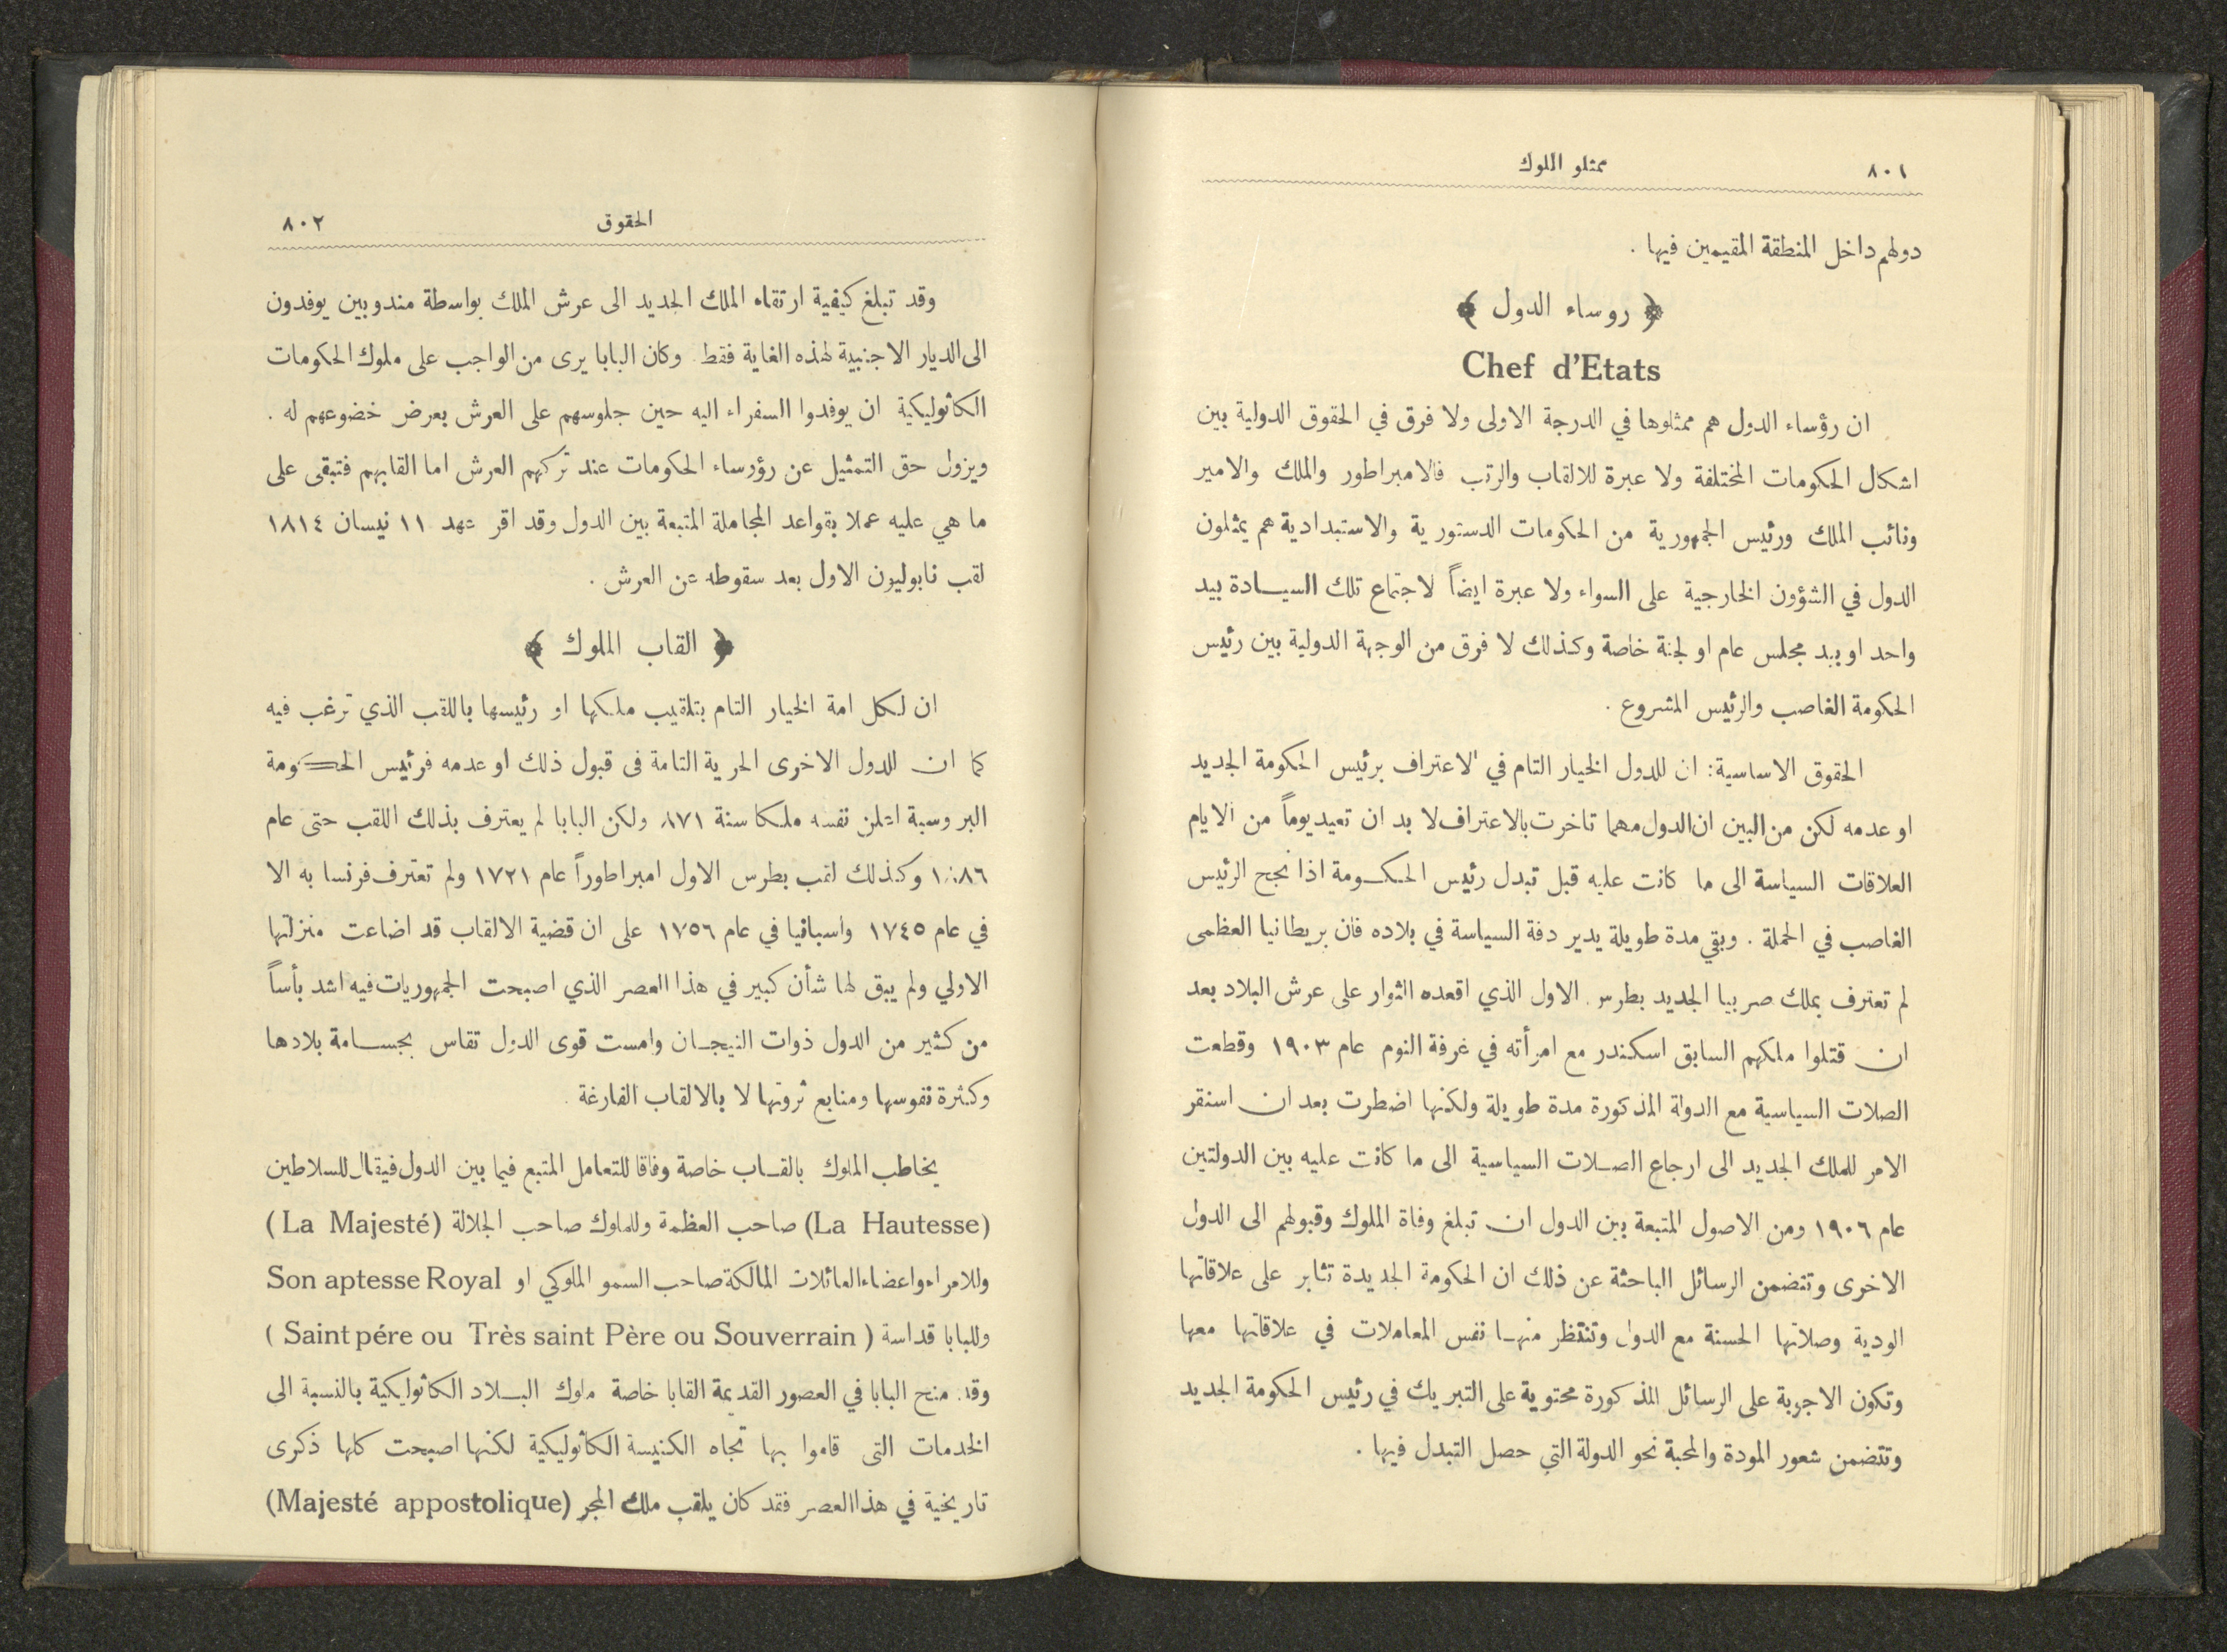 ٨٠١
ممثلو الملوك
دولهم داخل المنطقة المقيمين فيها .
﴿ روساء الدول ﴾
Chef d'Etats
ان رؤساء الدول هم ممثلوها في الدرجة الاولى ولا فرق في الحقوق الدولية بين
اشكال الحكومات المختلفة ولا عبرة للالقاب والرتب فالامبراطور والملك والامير
ونائب الملك ورئيس الجمهورية من الحكومات الدستورية والاستبدادية هم يمثلون
الدول في الشؤون الخارجية على السواء ولا عبرة ايضاً لاجتماع تلك السيادة بيد
واحد او بيد مجلس عام او لجنة خاصة وكذلك لا فرق من الوجهة الدولية بين رئيس
الحكومة الغاصب والرئيس المشروع .
الحقوق الاساسية : ان للدول الخيار التام في الاعتراف برئيس الحكومة الجديد
او عدمه لكن من البين ان الدول مهما تاخرت بالاعتراف لا بد ان تعيد يوماً من الايام
العلاقات السياسة الى ما كانت عليه قبل تبدل رئيس الحكومة اذا نجح الرئيس
الغاصب في الحملة . وبقي مدة طويلة يدير دفة السياسة في بلاده فان بريطانيا العظمى
لم تعترف بملك صربيا الجديد بطرس الاول الذي اقعده الثوار على عرش البلاد بعد
ان قتلوا ملكهم السابق اسكندر مع امرأته في غرفة النوم عام ١٩٠٣ وقطعت
الصلات السياسية مع الدولة المذكورة مدة طويلة ولكنها اضطرت بعد ان استقر
الامر للملك الجديد الى ارجاع الصلات السياسية الى ما كانت عليه بين الدولتين
عام ١٩٠٦ ومن الاصول المتبعة بين الدول ان تبلغ وفاة الملوك وقبولهم الى الدول
الاخرى وتتضمن الرسائل الباحثة عن ذلك ان الحكومة الجديدة تثابر على علاقاتها
الودية وصلاتها الحسنة مع الدول وتنتظر منها نفس المعاملات في علاقاتها معها
وتكون الاجوبة على الرسائل المذكورة محتوية على التبريك في رئيس الحكومة الجديد
وتتضمن شعور المودة والمحبة نحو الدولة التي حصل التبدل فيها .
الحقوق
٨٠٢
وقد تبلغ كيفية ارتقاء الملك الجديد الى عرش الملك بواسطة مندوبين يوفدون
الى الديار الاجنبية لهذه الغاية فقط . وكان البابا يرى من الواجب على ملوك الحكومات
الكاثوليكية ان يوفدوا السفراء اليه حين جلوسهم على العرش بعرض خضوعهم له .
ويزول حق التمثيل عن رؤرساء الحكومات عند تركهم العرش اما القابهم فتبقى على
ما هي عليه عملا بقواعد المجاملة المتبعة بين الدول وقد اقر عهد ١١ نيسان ١٨١٤
لقب نابوليون الاول بعد سقوطه عن العرش .
﴿ القاب الملوك ﴾
ان لكل امة الخيار التام بتلقيب ملكها او رئيسها باللقب الذي ترغب فيه
كما ان للدول الاخرى الحرية التامة فى قبول ذلك او عدمه فرئيس الحكومة
البروسية اعلن نفسه ملكا سنة ولكن البابا لم يعترف بذلك اللقب حتى عام
وكذلك لقب بطرس الاول امبراطوراً عام ١٧٢١ ولم تعترف فرنسا به الا
في عام ١٧٤٥ واسبانيا في عام ١٧٥٦ على ان قضية الالقاب قد اضاعت منزلتها
الاولي ولم يبق لها شأن كبير في هذا العصر الذي اصبحت الجمهوريات فيه اشد بأساً
من كثير من الدول ذوات التيجان وامست قوى الدول تقاس بجسامة بلادها
وكثرة نفوسها ومنابع ثروتها لا بالالقاب الفارغة .
يخاطب الملوك بالقاب خاصة وفاقا للتعامل المتبع فيما بين الدول فيقال للسلاطين
(La Hautesse) صاحب العظمة وللملوك صاحب الجلالة (La Majesté)
وللامراء واعضاء العائلات المالكة صاحب السمو الملوكي او Son aptesse Royal
وللبابا قداسة ( Saint pére ou Très saint Père ou Souverrain )
وقد منح البابا في العصور القديمة القابا خاصة ملوك البلاد الكاثوليكية بالنسبة الى
الخدمات التى قاموا بها تجاه الكنيسة الكاثوليكية لكنها اصبحت كلها ذكرى
تاريخية في هذا العصر فقد كان يلقب ملك المجر (Majesté appostolique)